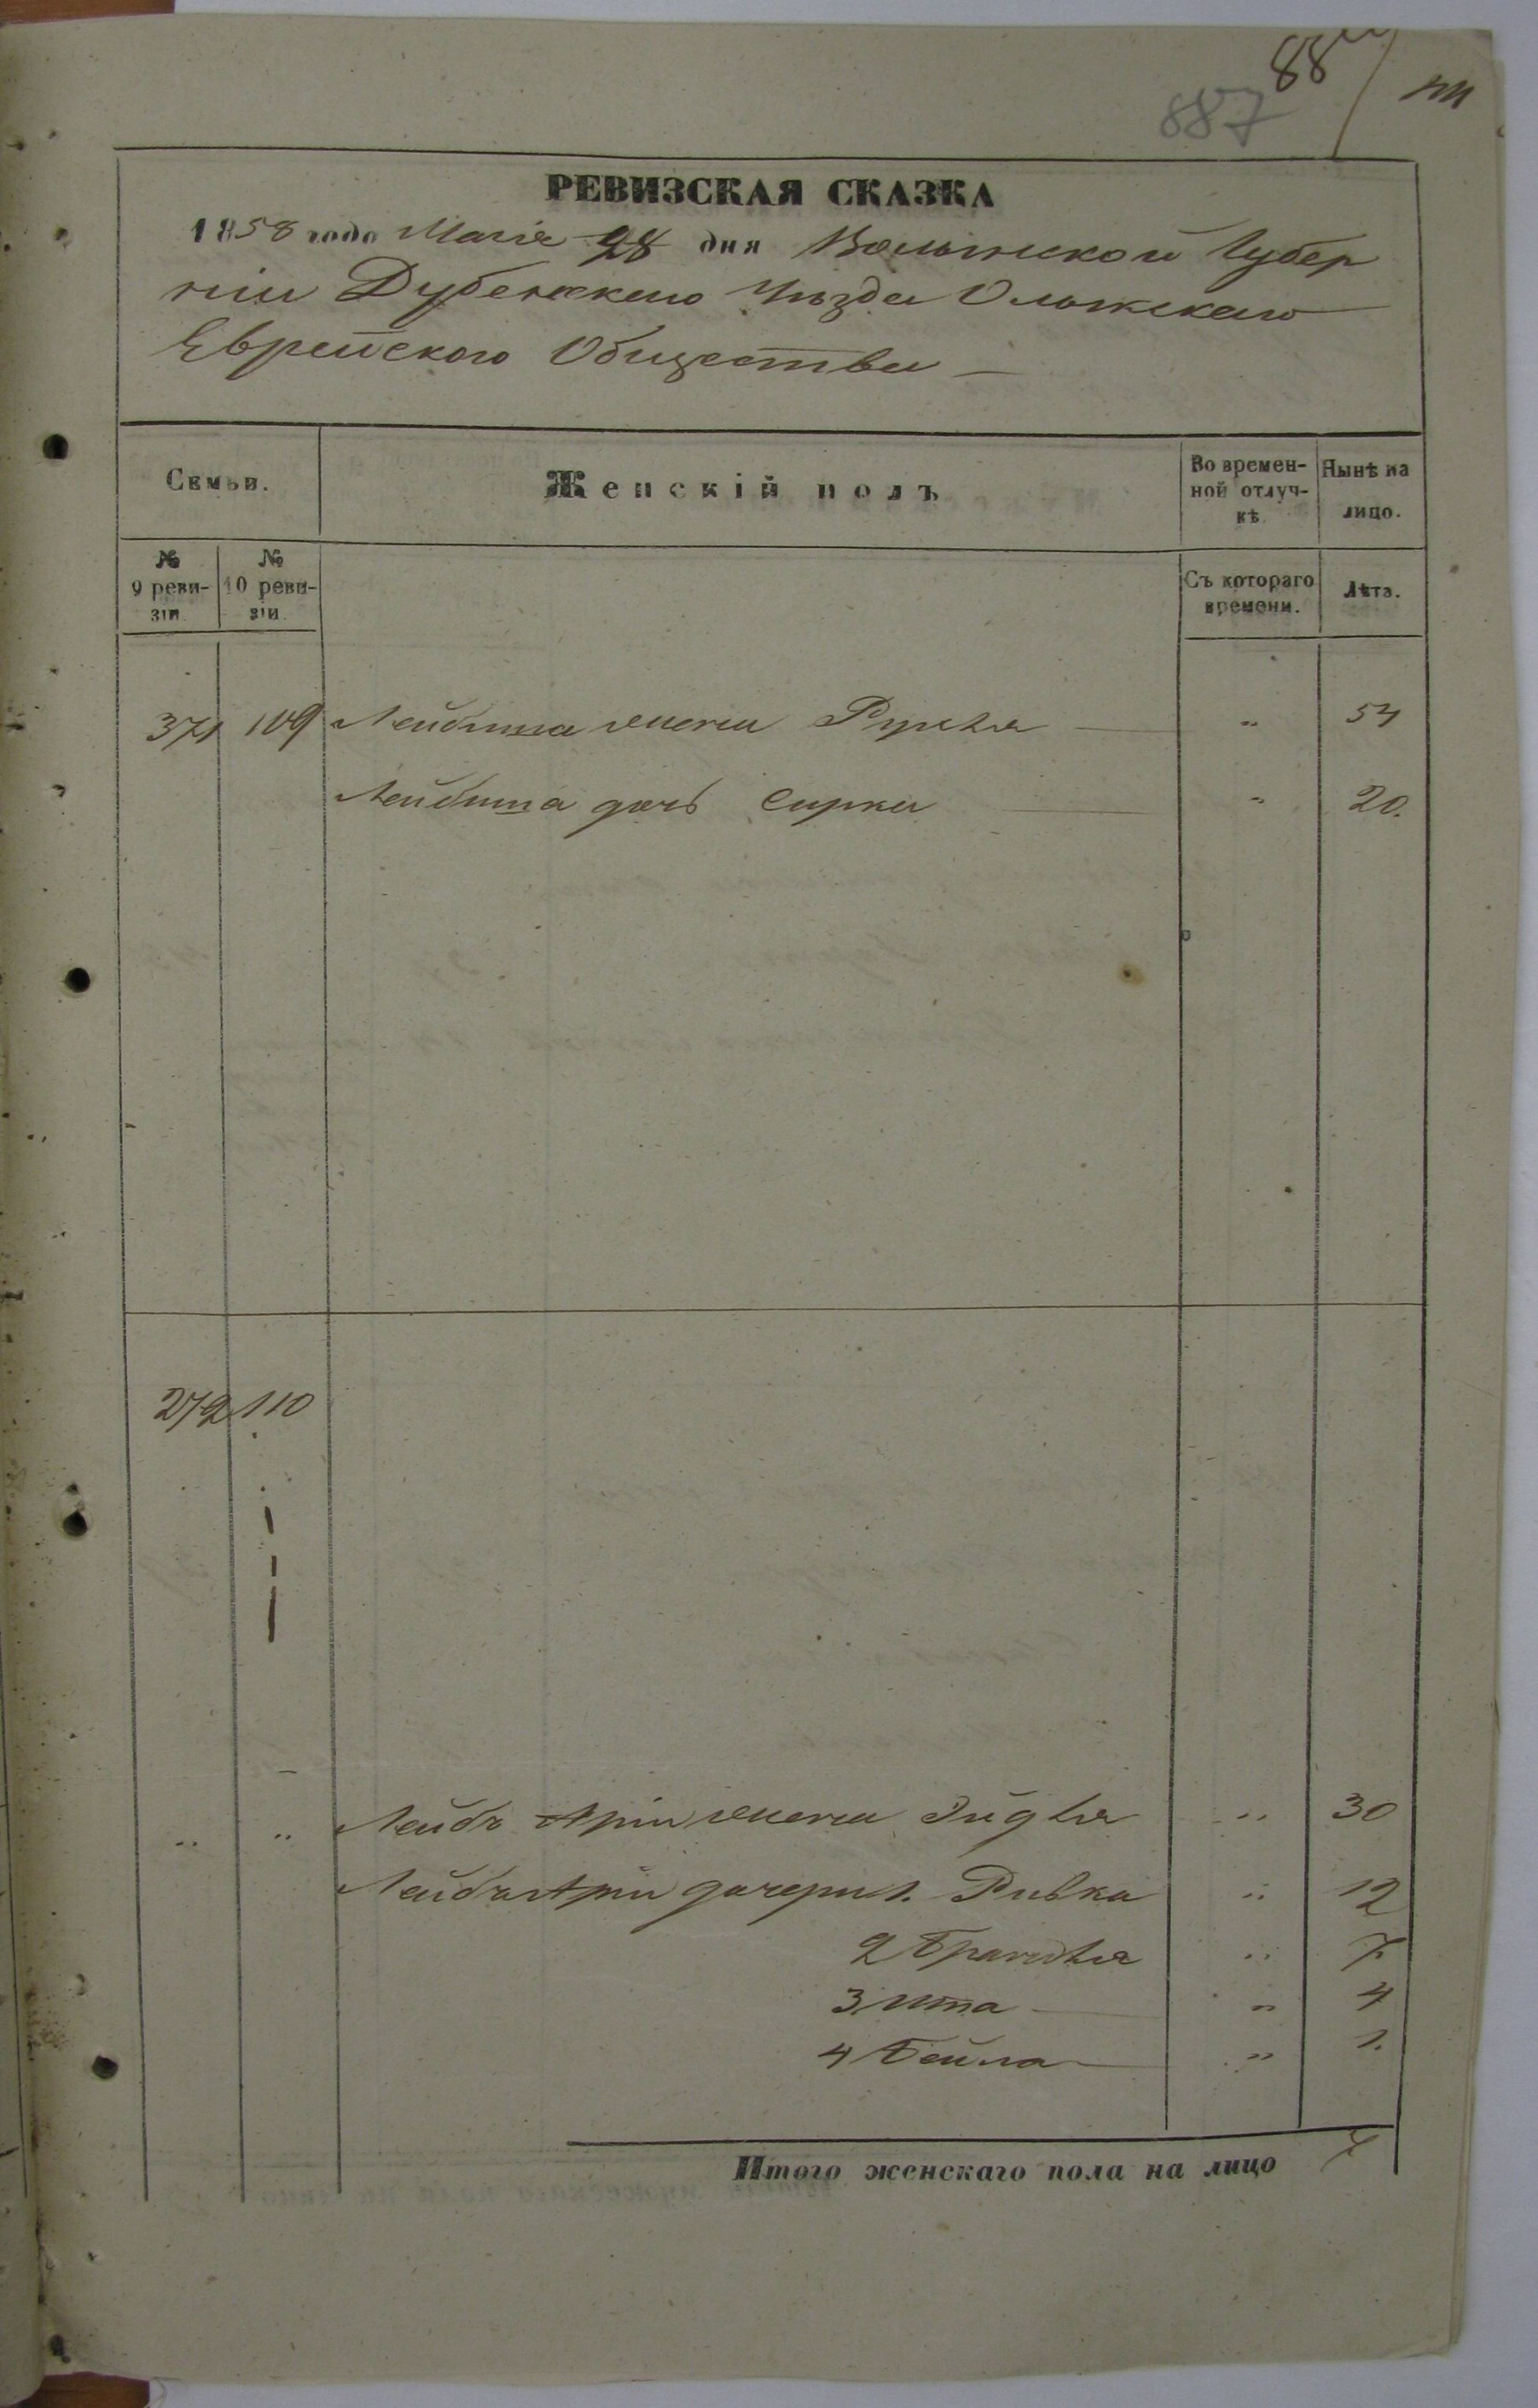 887
РЕВИЗСКАЯ СКАЗКА
1858 года Маія 28 дня Волынской Губер
ніи Дубенскаго Уѣзда Олыкскаго
Еврейского Общества
Семьи.
Женскій полъ
Во времен-
ной отлуч-
кѣ
Нынѣ на
лицо.
№
9 реви-
зіи.
№
10 реви-
зіи.
Съ котораго
времени.
Лѣта.
371 109 Лейбиша жена Рухля " 54
Лейбиша дочь Сурка " 20.
272 110
" " Лейбъ Аріи жена Эйдля " 30
Лейбъ Аріи дочери 1. Ривка " 12
2 Брандля " 7.
3 Ита " 4
4 Бейла " 1.
Итого женскаго пола на лицо 7